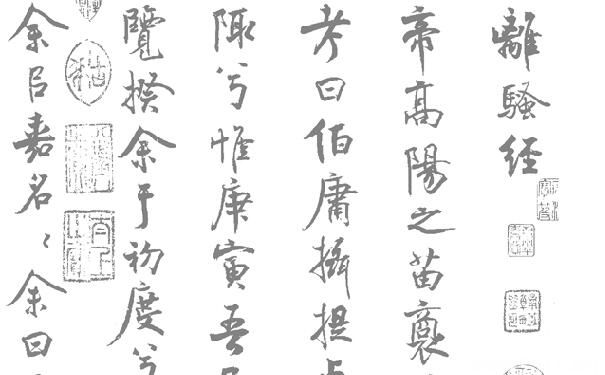 離騷經
帝高陽之苗裔
考曰伯庸攝提貞
陬兮惟庚寅吾
覽揆余于初度兮
余以嘉名〻余曰